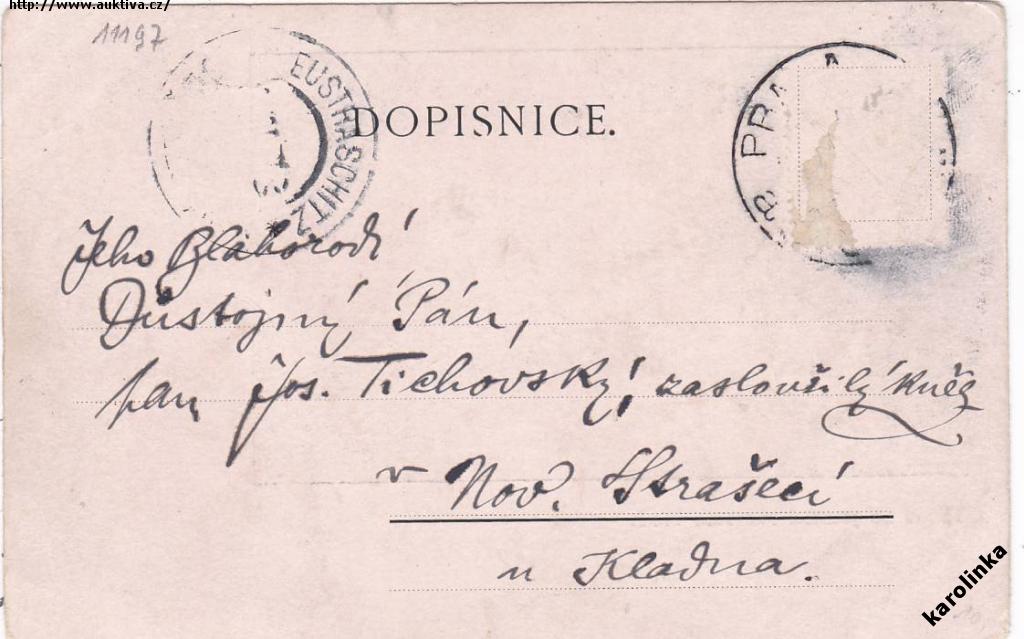 http://www.auktiva.cz/
11197
EUSTRASCHITZ
DOPISNICE.
PRA
Jeho Blahorodí
Důstojný Pán,
pan Jos. Tichovský, zasloužilý kněz
v Nov. Strašecí
u Kladna.
karolinka